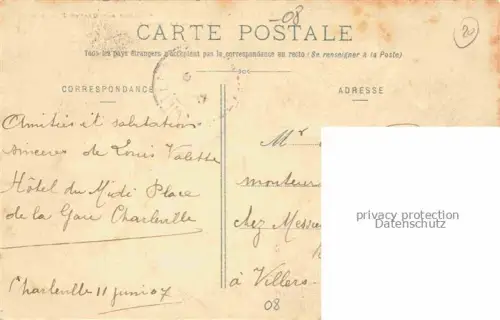 -08
CARTE POSTALE
20
Tous les pays étrangers n'acceptent pas la correspondance au recto (Se renseigner à la Poste)
CORRESPONDANCE
ADRESSE
Amitiés et salutations
sinceres de Louis Valette
Hôtel du Midi Place
de la Gare Charleville
Charleville 11 juni 07
Mr
monteur
chez Messie
à Villers
08
privacy protection
Datenschutz